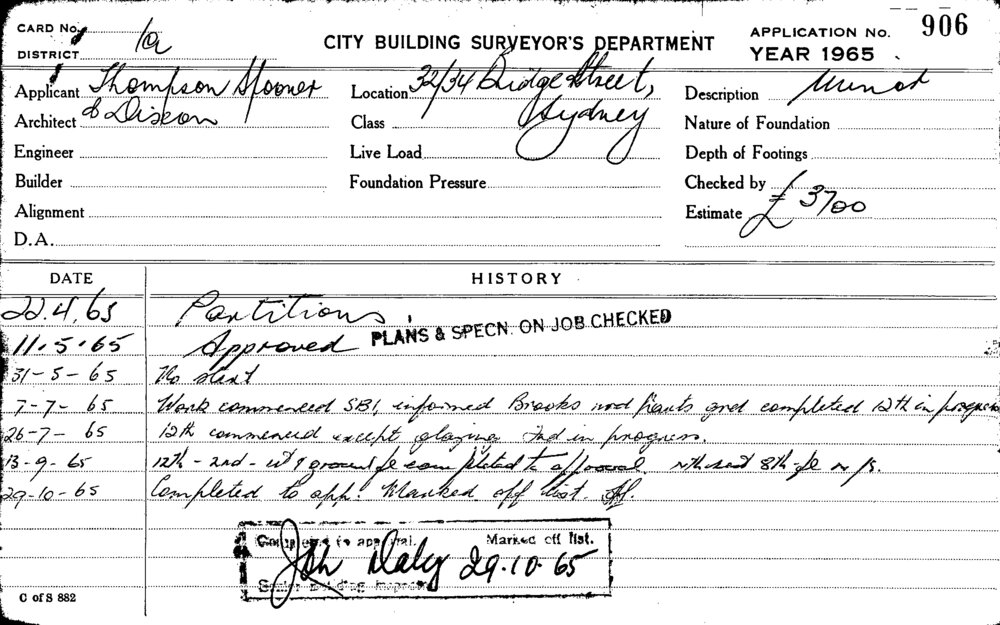 CARD No. 1a
APPLICATION No. 906
DISTRICT
CITY BUILDING SURVEYOR'S DEPARTMENT
YEAR 1965
Applicant Thompson Spooner
Location 32/34 Bridge Street,
Description Minor
Architect & Dixon
Class Sydney
Nature of Foundation
Engineer
Live Load
Depth of Footings
Builder
Foundation Pressure
Checked by
Alignment
Estimate £3700
D.A.
DATE HISTORY
22.4.65 Partitions
11.5.65 Approved PLANS & SPECN. ON JOB CHECKED
31-5-65 No start
7-7-65 Work commenced SB1, informed Brooks and completed 12th in progress
26-7-65 12th commenced except glazing 2nd in progress.
13-9-65 12th - 2nd - completed to approval. 8th
29-10-65 Completed to app. Marked off list.
Completed to approval. Marked off list.
Joh Daley 29.10.65
Senior Building Inspector
C of S 882